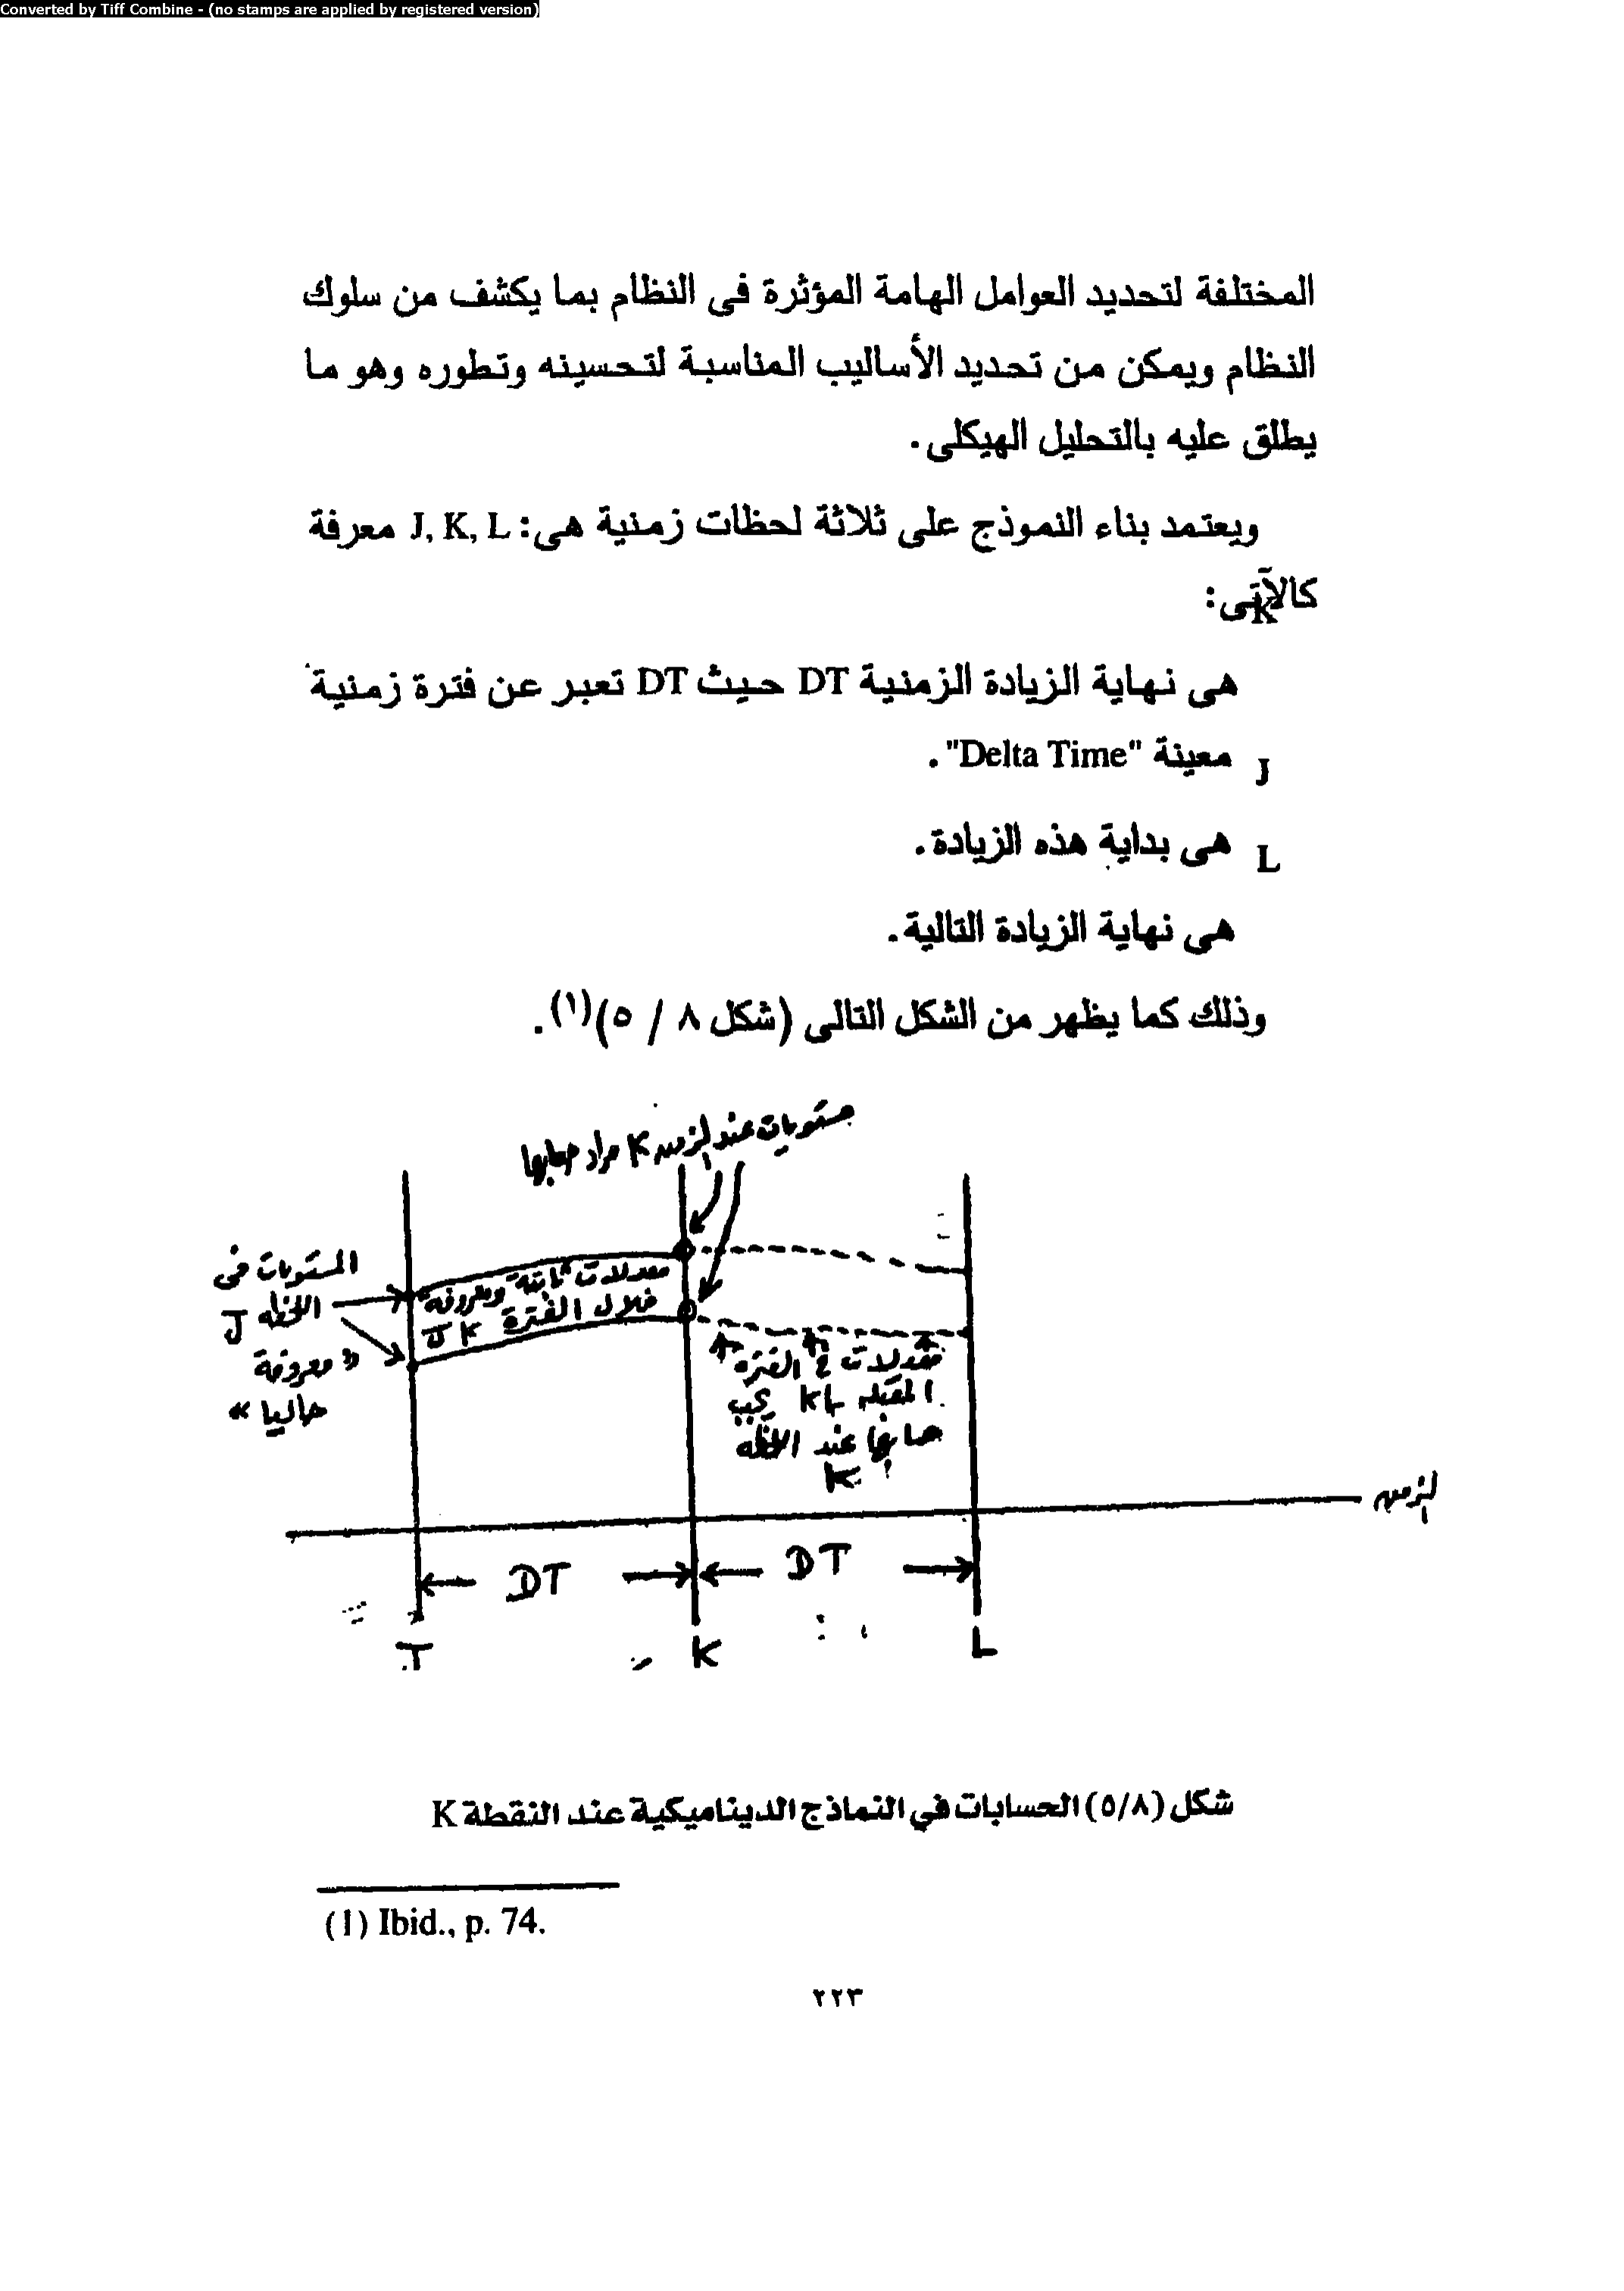 Converted by Tiff Combine - (no stamps are applied by registered version)
المختلفة لتحديد العوامل الهامة المؤثرة فى النظام بما يكشف من سلوك
النظام ويمكن من تحديد الأساليب المناسبة لتحسينه وتطوره وهو ما
يطلق عليه بالتحليل الهيكلى.
ويعتمد بناء النموذج على ثلاثة لحظات زمنية هى: J, K, L معرفة
كالآتى:
K
هى نهاية الزيادة الزمنية DT حيث DT تعبر عن فترة زمنية
معينة "Delta Time".
J
هى بداية هذه الزيادة.
L
هى نهاية الزيادة التالية.
وذلك كما يظهر من الشكل التالى (شكل ٨ / ٥)(١).
مستويات عند الزمن K مراد حسابها
المستويات فى
اللحظه J
« معروفة
حاليا »
معدلات ثابتة ومعروفة
خلال الفترة J K
معدلات فى الفتره
المقبله KL يجب
حسابها عند اللحظه
K
الزمن
DT
DT
J
K
L
شكل (٥/٨) الحسابات في النماذج الديناميكية عند النقطة K
(1) Ibid., p. 74.
٢٢٣